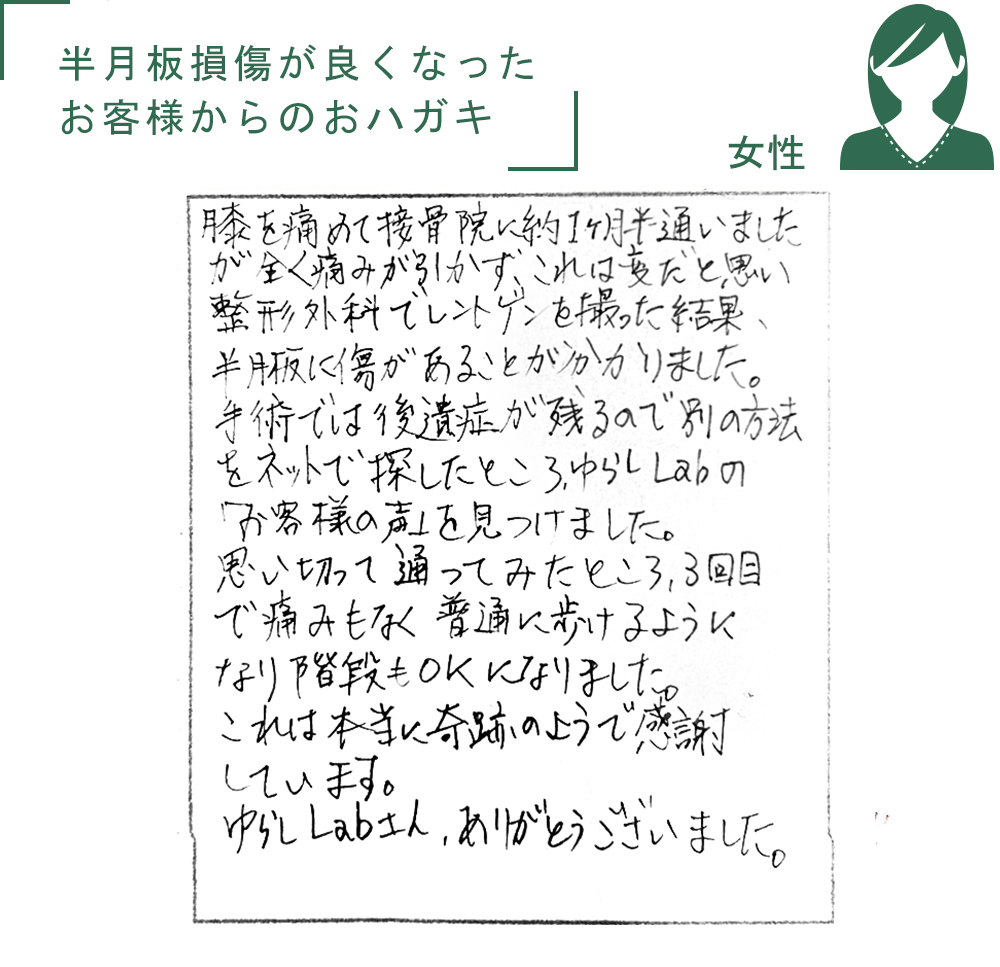 半月板損傷が良くなった
お客様からのおハガキ
女性
膝を痛めて接骨院に約1ヶ月半通いました
が全く痛みが引かず、これは変だと思い
整形外科でレントゲンを撮った結果、
半月板に傷があることが分かりました。
手術では後遺症が残るので別の方法
をネットで探したところ、ゆらしLabの
「お客様の声」を見つけました。
思い切って通ってみたところ、3回目
で痛みもなく普通に歩けるように
なり階段もOKになりました。
これは本当に奇跡のようで感謝
しています。
ゆらしLabさん、ありがとうございました。